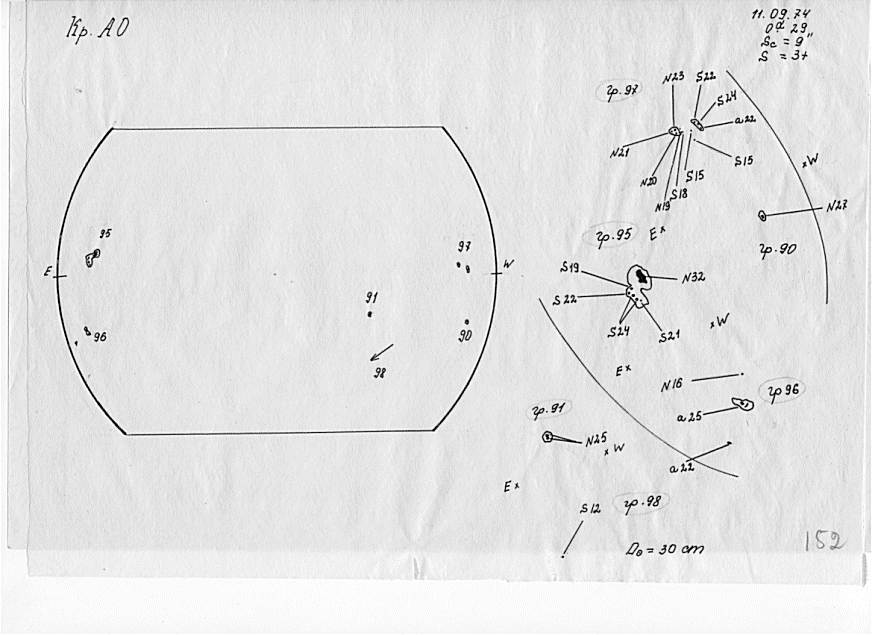 Кр. АО
11.09.74
0ᵈ 29
Sc = 9"
S = 3+
гр.97
N23
S22
S24
a22
N21
S15
N20
S15
S18
N19
×W
N27
гр.90
гр.95
E×
S19
N32
S22
S24
S21
×W
95
E
97
W
91
90
96
98
E×
N16
гр96
a25
гр.91
N25
×W
a22
E×
S12
гр.98
D₀ = 30 cm
152